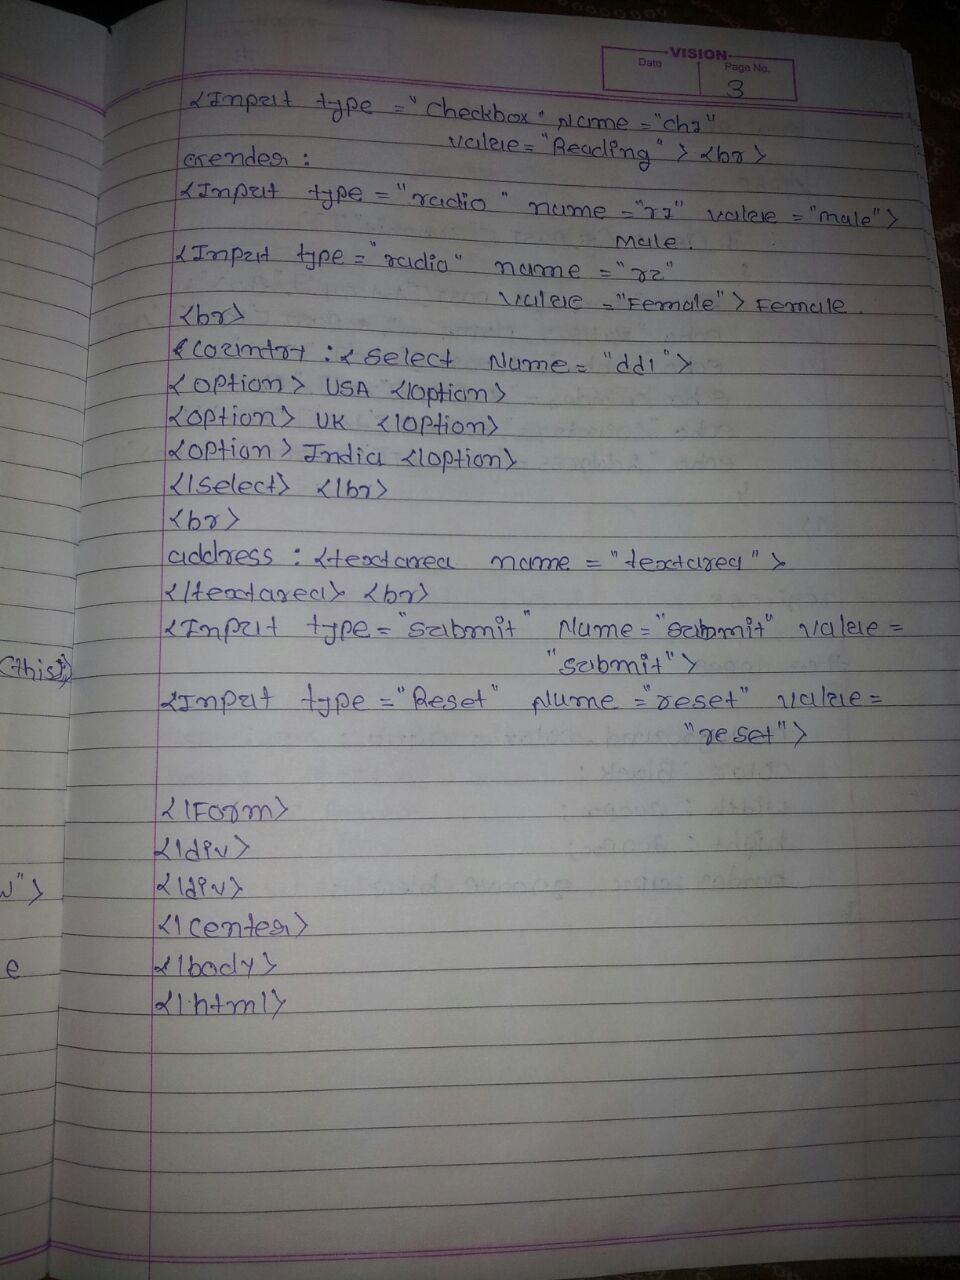 VISION
Date Page No.
3
<Input type = "checkbox" Name = "ch1"
value = "Reading" > <br>
Gender :
<Input type = "radio" name = "r1" value = "male">
Male.
<Input type = "radio" name = "r2"
value = "Female" > Female.
<br>
Country : < select Name = "dd1" >
<option> USA </option>
<option> UK </option>
<option> India </option>
</select> </br>
<br>
address : <textarea name = "textarea" >
</textarea> <br>
<Input type = "submit" Name = "submit" value =
"submit">
<Input type = "Reset" Name = "reset" value =
"reset">
</Form>
</div>
</div>
</center>
</body>
</html>
(this);
">
e